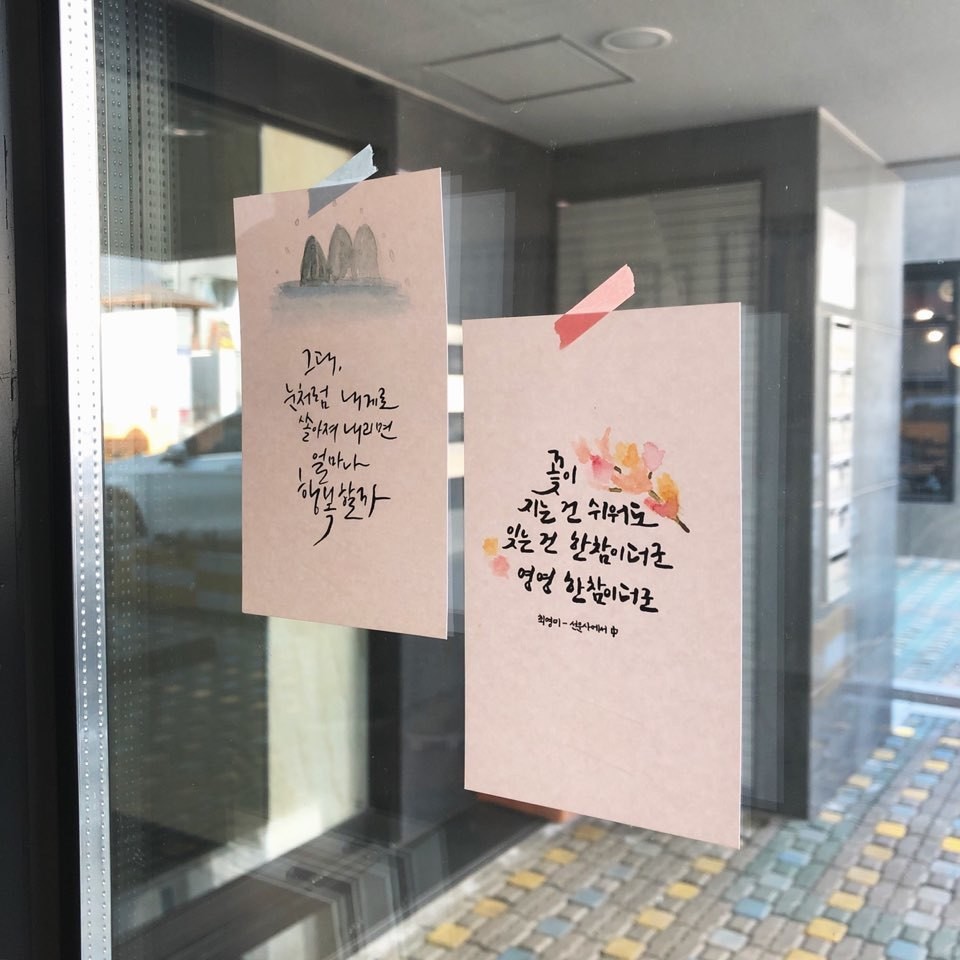 그대,
눈처럼 내게로
쏟아져 내리면
얼마나
행복할까
꽃이
지는 건 쉬워도
잊는 건 한참이더군
영영 한참이더군
최영미 - 선운사에서 中